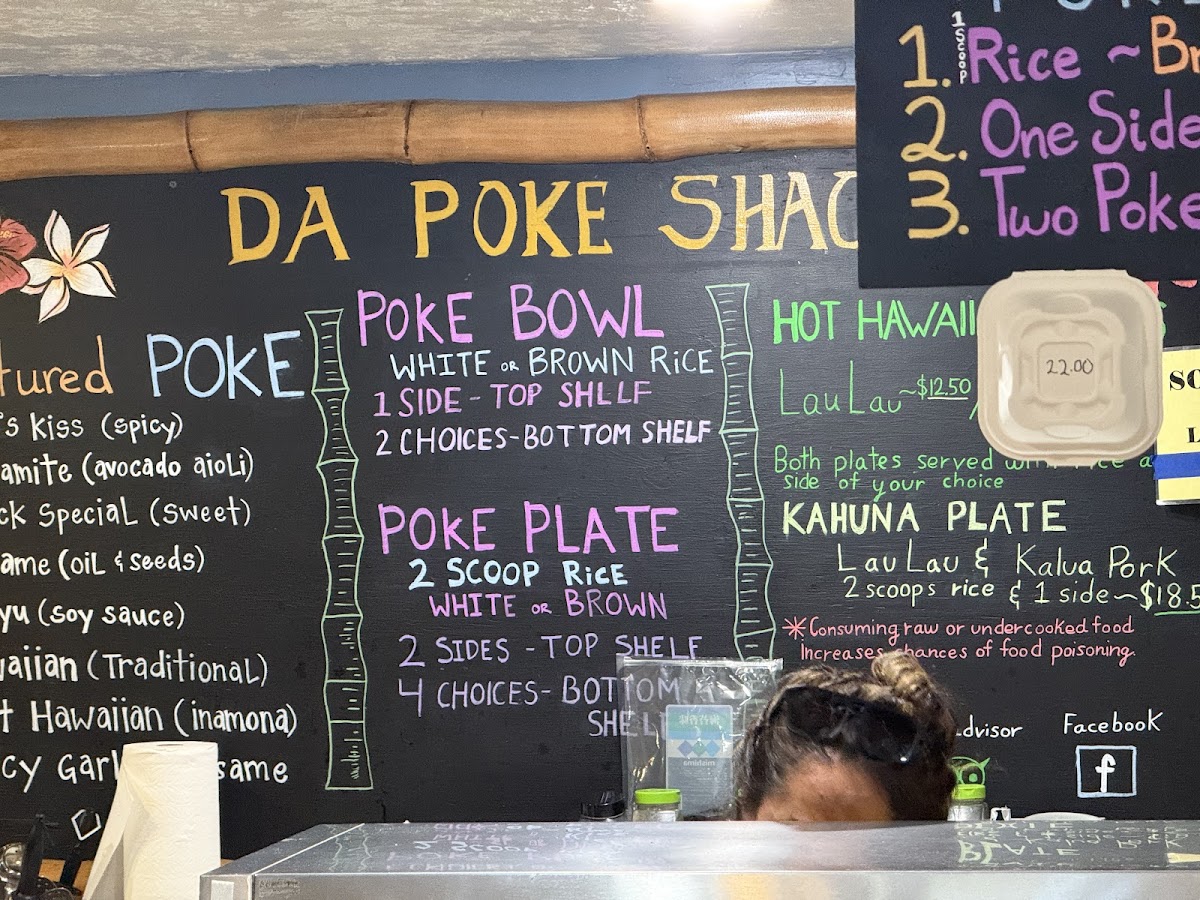 DA POKE SHAC
tured POKE
's Kiss (spicy)
amite (avocado aioli)
ck Special (Sweet)
ame (oil & seeds)
yu (soy sauce)
waiian (Traditional)
t Hawaiian (inamona)
cy Garl same
POKE BOWL
WHITE OR BROWN RICE
1 SIDE - TOP SHLLF
2 CHOICES-BOTTOM SHELF
POKE PLATE
2 SCOOP RICE
WHITE OR BROWN
2 SIDES - TOP SHELF
4 CHOICES - BOTTOM
SHEL
1. 1 Scoop Rice ~ Br
2. One Side
3. Two Poke
HOT HAWAII
22.00
Lau Lau ~ $12.50
Both plates served with rice a
side of your choice
KAHUNA PLATE
Lau Lau & Kalua Pork
2 scoops rice & 1 side ~ $18.5
*Consuming raw or undercooked food
Increases chances of food poisoning.
SO
L
dvisor
Facebook
f